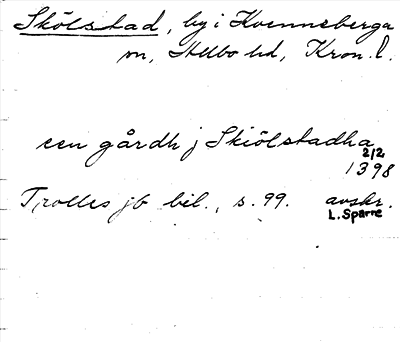 Skölstad, by i Hvenneberga
sn, Allbo hd, Kron. l.
een gårdh j Skiölstadha
2/2
1398
Trolles jb bil., s. 99. avskr.
L. Sparre